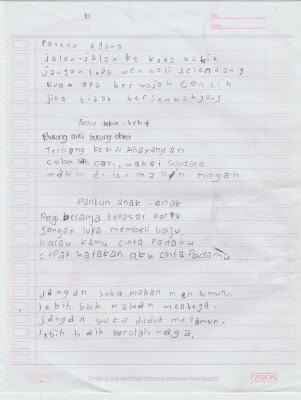 Pantun agama
jalan-jalan ke kota
jangan lupa membeli selendang
buat apa berwajah cantik
jika tidak bersembahyang
Burung nuri burung dara
Terbang kesisi khayangan
coba cari, wahai saudara
makin di isi makin ringan
Pantun anak-anak
Pergi belama kepasar baru
Jangan lupa membeli baju
kalau kamu cinta padaku
cepat katakan aku cinta padamu
jangan suka makan mentimun.
lebih baik makan mentega.
jangan suka duduk melamun.
lebih baik berolah raga.
VISION